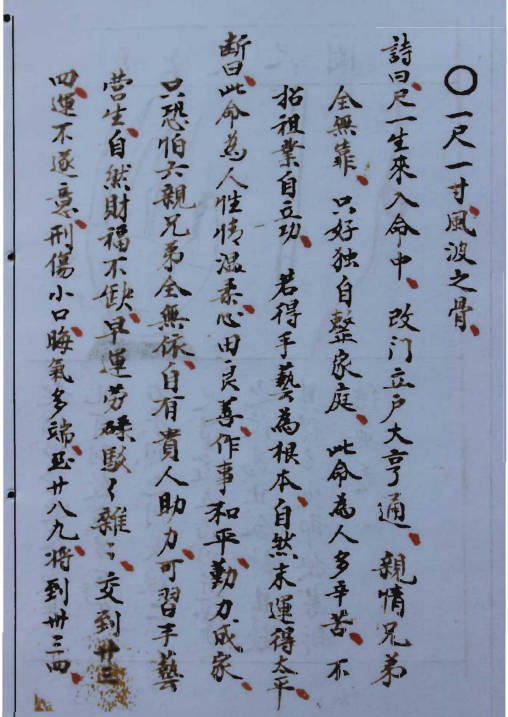 〇一尺一寸風波之骨
詩曰尺一生來入命中 改门立户大亨通 親情兄弟
全無靠 只好独自整家庭 此命為人多辛苦 不
招祖業自立功 若得手藝為根本 自然末運得太平
断曰此命為人性情温柔心田良善作事和平勤力成家
只恐怕六親兄弟全無依自有貴人助力可習手藝
营生自然財福不缺早運劳碌駁〻雜〻交到廿三
四運不遂意刑傷小口晦氣多端至廿八九将到卅三四